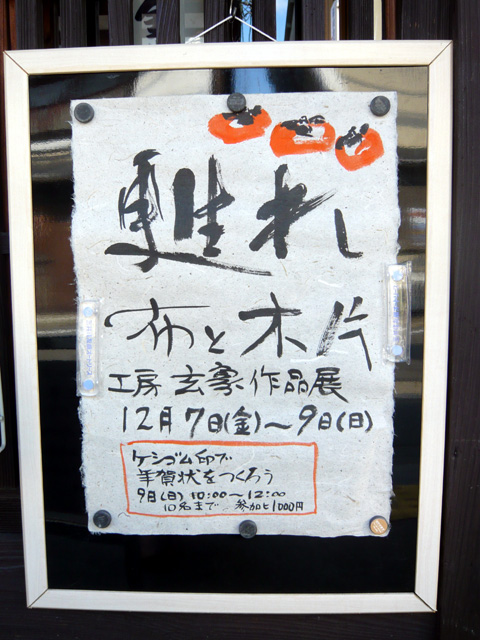 甦れ
布と木片
工房 玄豪 作品展
12月7日(金)〜9日(日)
ケシゴム印で
年賀状をつくろう
9日(日) 10:00〜12:00
10名まで 参加ヒ1000円